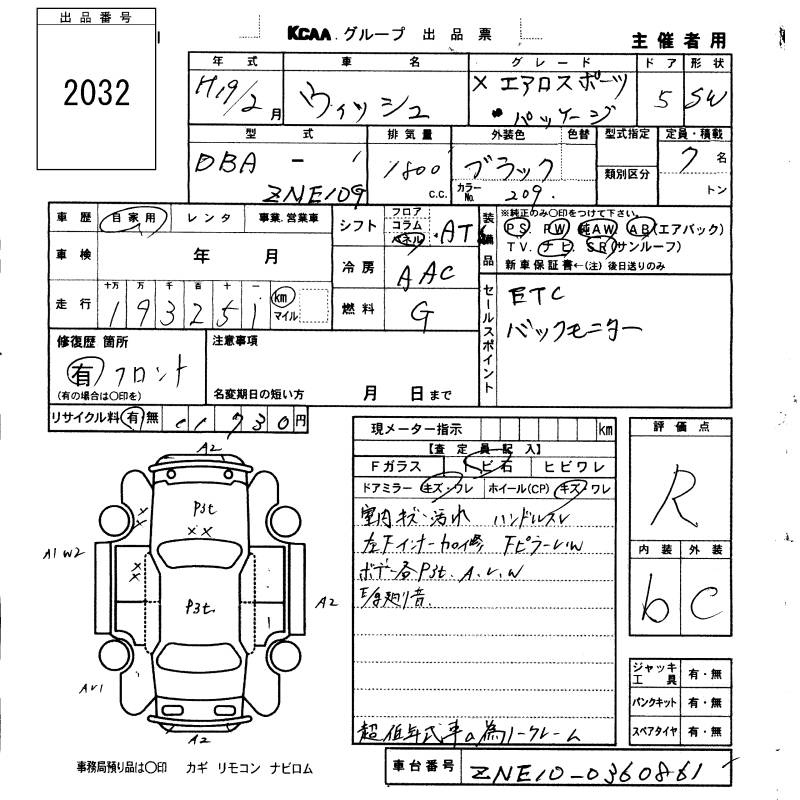 出品番号
2032
KCAA グループ 出品票
主催者用
年式 車名 グレード ドア 形状
H19/2月 ウィッシュ X エアロスポーツパッケージ 5 SW
型式 排気量 外装色 色替 型式指定 定員・積載
DBA - ZNE10G 1800 c.c. ブラック カラーNo. 209 類別区分 7名 トン
車歴 自家用 レンタ 事業・営業車
シフト フロア コラム パネル AT
装備品 ※純正のみ〇印をつけて下さい。
PS. PW 純AW AB(エアバック)
TV. ナビ. SR(サンルーフ)
新車保証書←(注)後日送りのみ
車検 年 月
冷房 AAC
走行 十万 万 千 百 十 一
193251 km マイル
燃料 G
セールスポイント ETC
バックモニター
修復歴 箇所
有 フロント
(有の場合は〇印を)
注意事項
名変期日の短い方 月 日まで
リサイクル料 有 無 730円
現メーター指示 km
【査定員記入】
Fガラス 飛石 ヒビワレ
ドアミラー キズ・ワレ ホイール(CP) キズ・ワレ
室内キズ・汚れ ハンドルスレ
左Fインナー加修 FピラーUW
ボデー各P3t. A.U.W
超低年式車の為ノークレーム
評価点
R
内装 外装
b C
ジャッキ工具 有・無
パンクキット 有・無
スペアタイヤ 有・無
A2
P3t
××
A1W2
P3t
A2
AU1
A2
事務局預り品は〇印 カギ リモコン ナビロム
車台番号 ZNE10-0360861